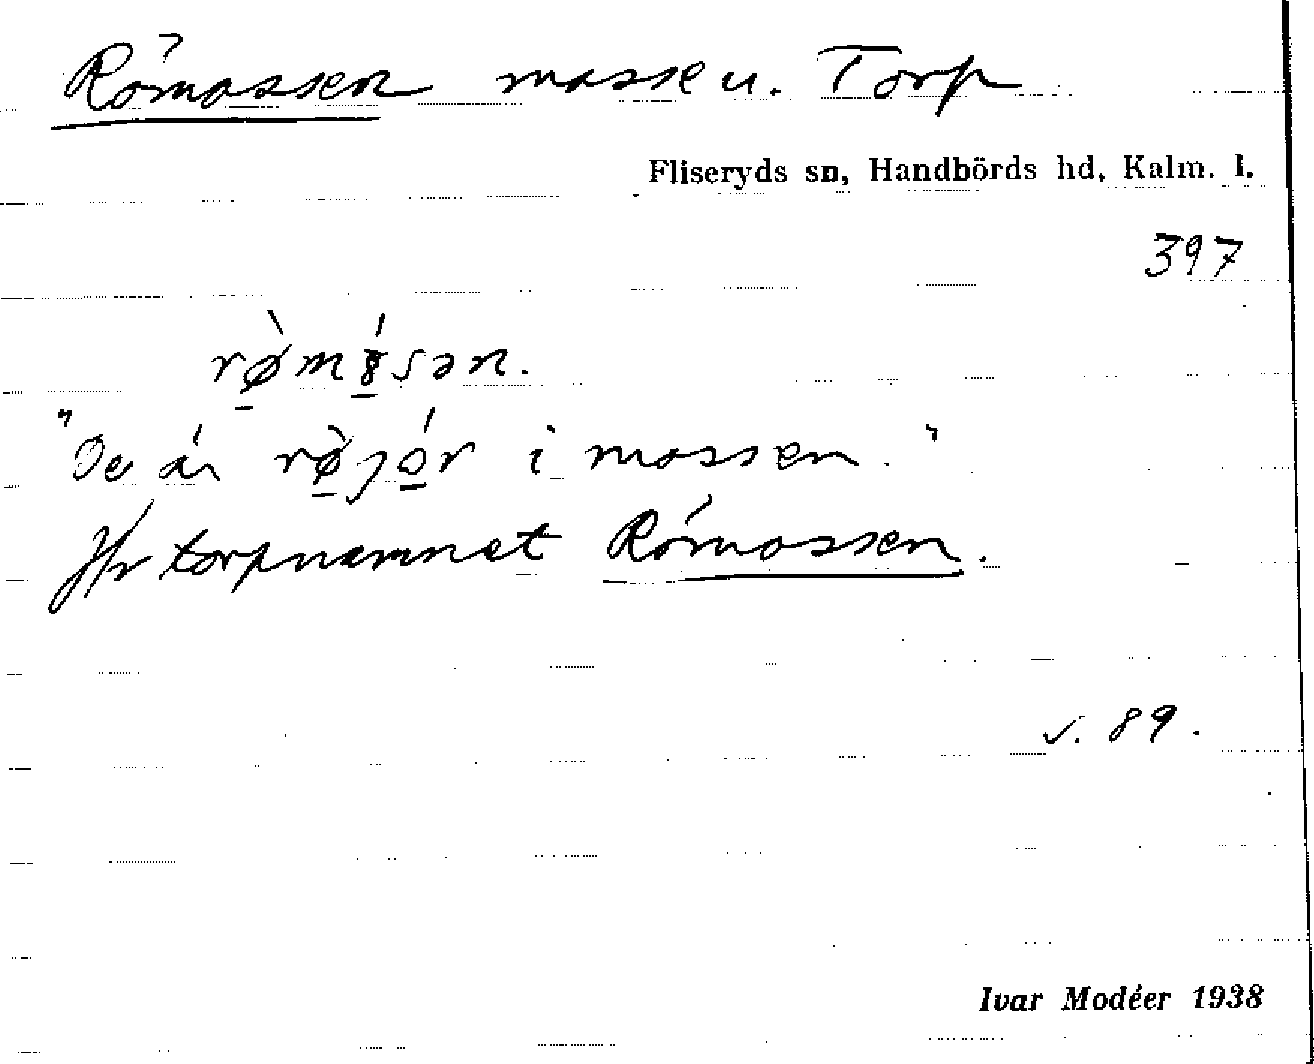 Römossen mosse u. Torp
Fliseryds sn, Handbörds hd, Kalm. l.
397
rø̀mósən.
"De är rø̀jór i mossen."
Jfr torpnamnet Römossen.
s. 89.
Ivar Modéer 1938